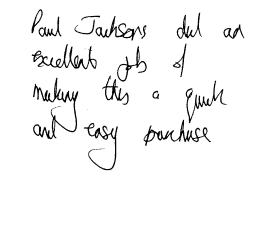 Paul Jacksons did an
excellent job of
making this a quick
and easy purchase